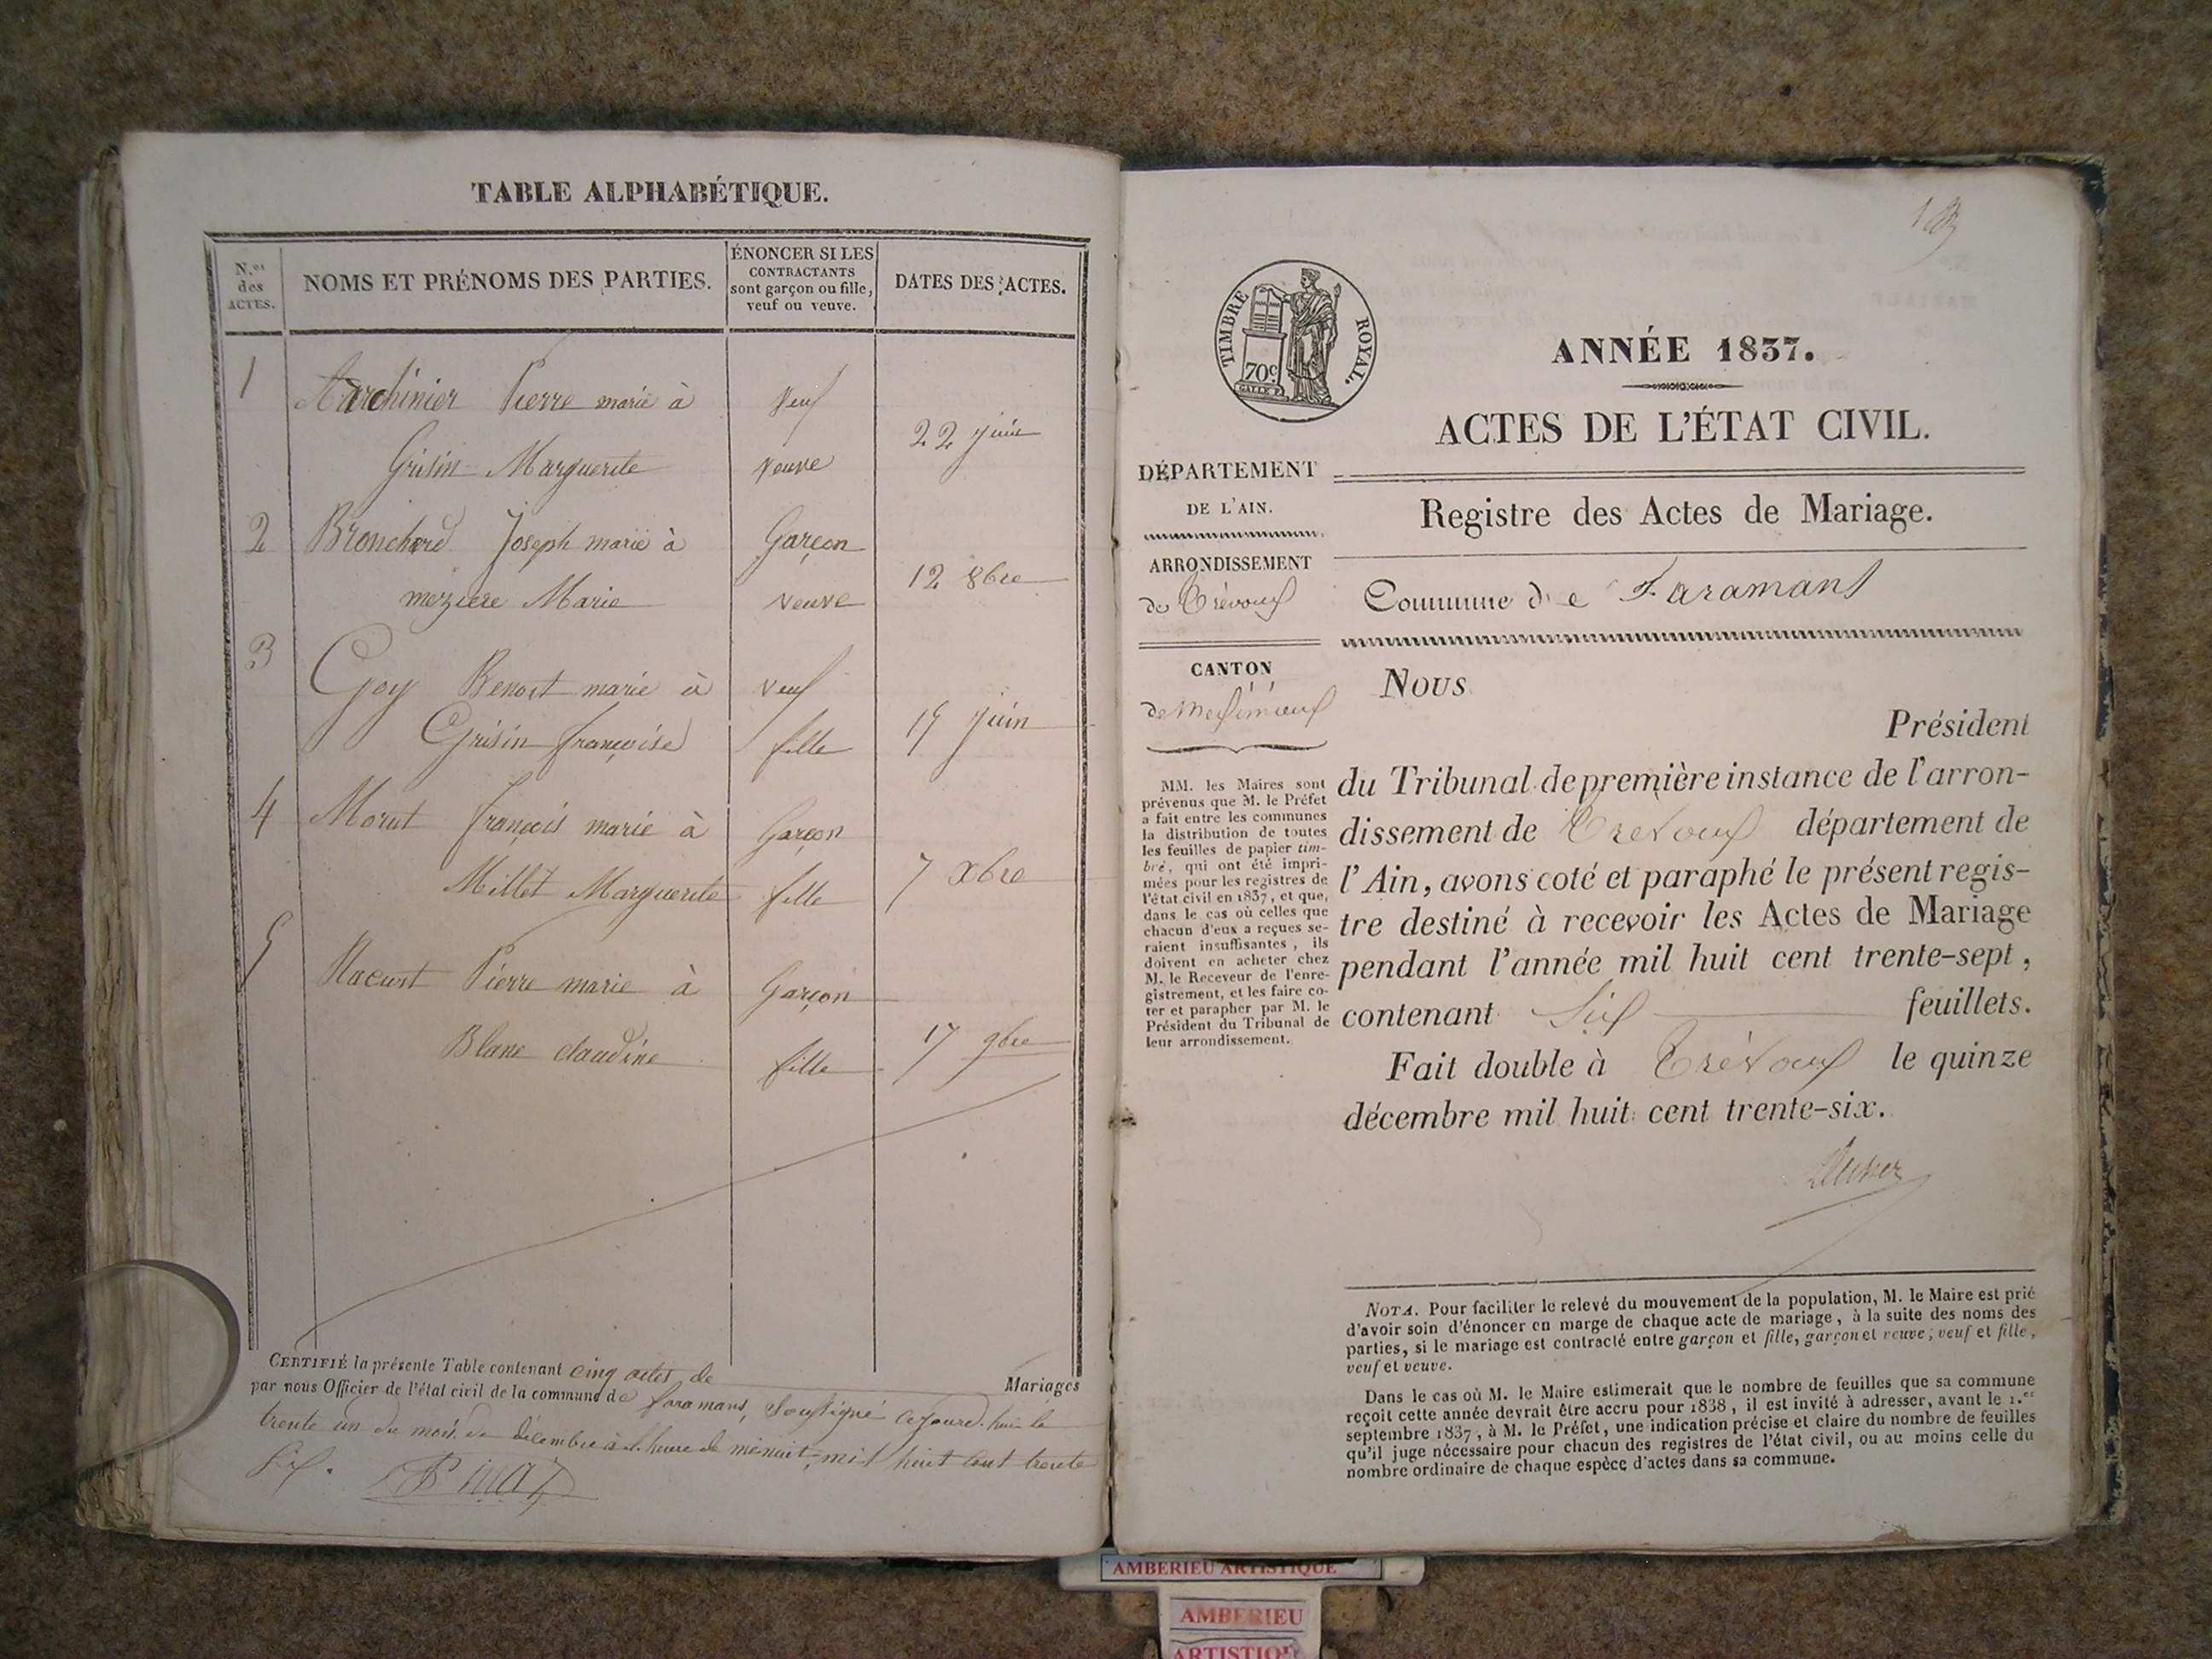 TABLE ALPHABÉTIQUE.
N.os des ACTES.
NOMS ET PRÉNOMS DES PARTIES.
ÉNONCER SI LES
CONTRACTANTS
sont garçon ou fille,
veuf ou veuve.
DATES DES ACTES.
1 Marchinier Pierre marié à Veuf
22 juin
Grisin Marguerite veuve
2 Bronchard Joseph marié à Garçon
12 8bre
meziere Marie veuve
3 Goy Benoit marié à veuf
15 juin
Grisin françoise fille
4 Morut françois marié à Garçon
7 Xbre
Millet Marguerite fille
5 Pierre marié à Garçon
17 9bre
Blanc claudine fille
CERTIFIÉ la présente Table contenant cinq actes de Mariages
par nous Officier de l'état civil de la commune de faramans, Soussigné cejourd'hui le
trente un du mois de décembre à l'heure de minuit, mil huit cent trente
six.
TIMBRE ROYAL.
70c
GALLE F.
ANNÉE 1837.
ACTES DE L'ÉTAT CIVIL.
DÉPARTEMENT
DE L'AIN.
Registre des Actes de Mariage.
ARRONDISSEMENT
de Trévoux
Commune de Faramans
CANTON
de Meximieux
MM. les Maires sont
prévenus que M. le Préfet
a fait entre les communes
la distribution de toutes
les feuilles de papier tim-
bré, qui ont été impri-
mées pour les registres de
l'état civil en 1837, et que,
dans le cas où celles que
chacun d'eux a reçues se-
raient insuffisantes, ils
doivent en acheter chez
M. le Receveur de l'enre-
gistrement, et les faire co-
ter et parapher par M. le
Président du Tribunal de
leur arrondissement.
Nous
Président
du Tribunal de première instance de l'arron-
dissement de Trévoux département de
l'Ain, avons coté et paraphé le présent regis-
tre destiné à recevoir les Actes de Mariage
pendant l'année mil huit cent trente-sept,
contenant Six feuillets.
Fait double à Trévoux le quinze
décembre mil huit cent trente-six.
NOTA. Pour faciliter le relevé du mouvement de la population, M. le Maire est prié
d'avoir soin d'énoncer en marge de chaque acte de mariage, à la suite des noms des
parties, si le mariage est contracté entre garçon et fille, garçon et veuve, veuf et fille,
veuf et veuve.
Dans le cas où M. le Maire estimerait que le nombre de feuilles que sa commune
reçoit cette année devrait être accru pour 1838, il est invité à adresser, avant le 1.er
septembre 1837, à M. le Préfet, une indication précise et claire du nombre de feuilles
qu'il juge nécessaire pour chacun des registres de l'état civil, ou au moins celle du
nombre ordinaire de chaque espèce d'actes dans sa commune.
AMBERIEU ARTISTIQUE
AMBERIEU
ARTISTIQUE